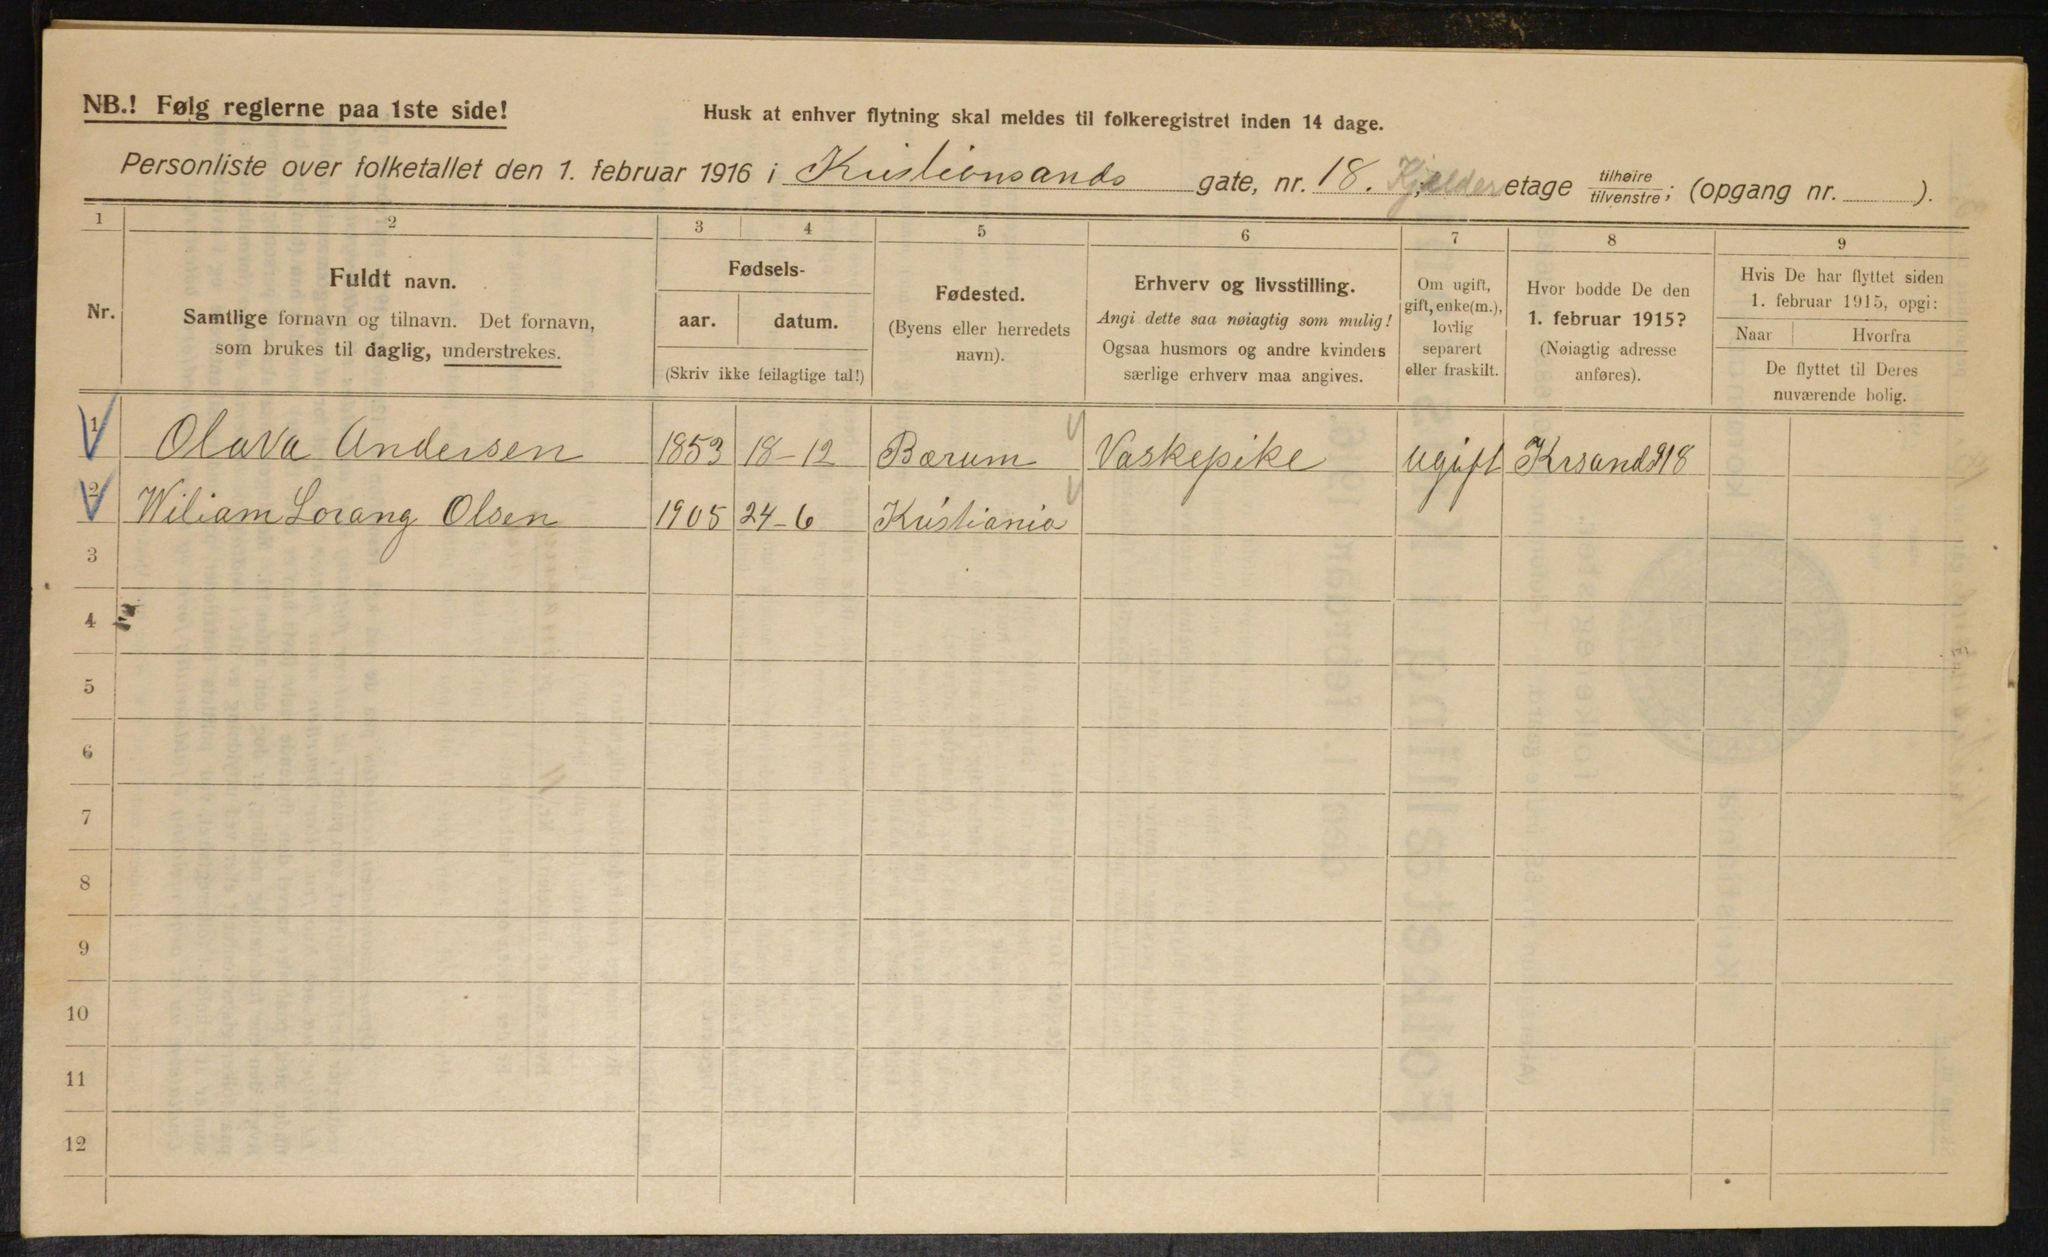 NB.! Følg reglerne paa 1ste side!
Husk at enhver flytning skal meldes til folkeregistret inden 14 dage.
Personliste over folketallet den 1. februar 1916 i Kristiansands gate, nr. 18. Kjelder etage tilhøire tilvenstre; (opgang nr. ).
1 2 3 4 5 6 7 8 9
Nr.
Fuldt navn.
Samtlige fornavn og tilnavn. Det fornavn,
som brukes til daglig, understrekes.
Fødsels-
aar. datum.
(Skriv ikke feilagtige tal!)
Fødested.
(Byens eller herredets
navn).
Erhverv og livsstilling.
Angi dette saa nøiagtig som mulig!
Ogsaa husmors og andre kvinders
særlige erhverv maa angives.
Om ugift,
gift, enke(m.),
lovlig
separert
eller fraskilt.
Hvor bodde De den
1. februar 1915?
(Nøiagtig adresse
anføres).
Hvis De har flyttet siden
1. februar 1915, opgi:
Naar Hvorfra
De flyttet til Deres
nuværende bolig.
1 Olava Andersen 1853 18-12 Bærum Vaskepike ugift Krsandsg 18
2 Wiliam Lorang Olsen 1905 24-6 Kristiania
3
4
5
6
7
8
9
10
11
12